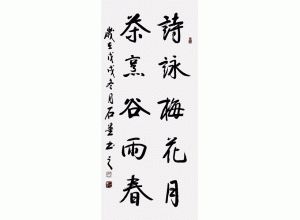 詩詠梅花月
茶烹谷雨春
歲在戊戌冬月石墨书之